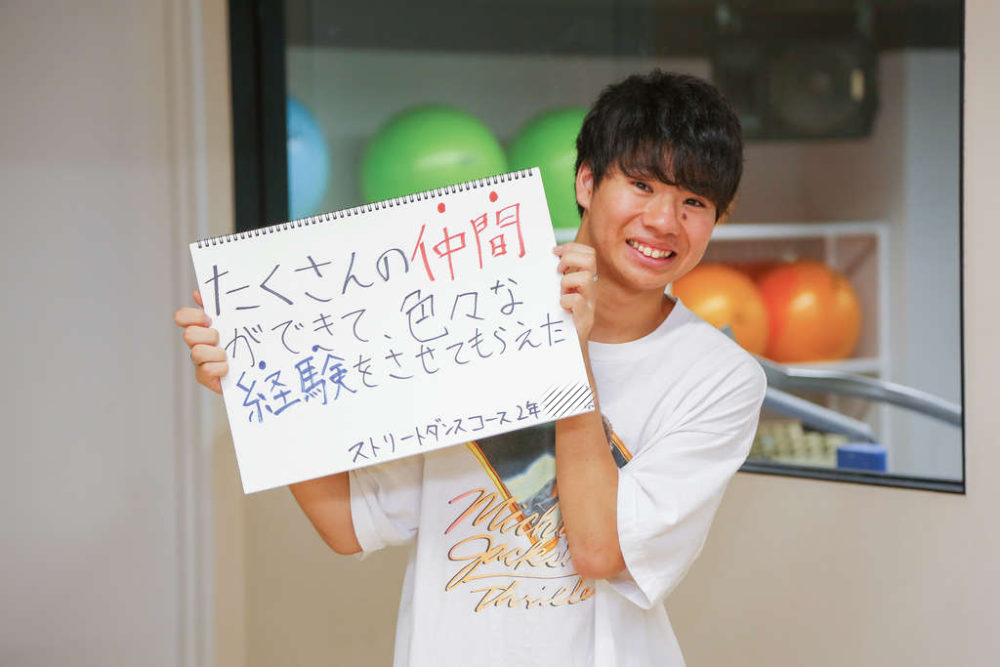 たくさんの仲間
ができて、色々な
経験をさせてもらえた
ストリートダンスコース2年
Thriller